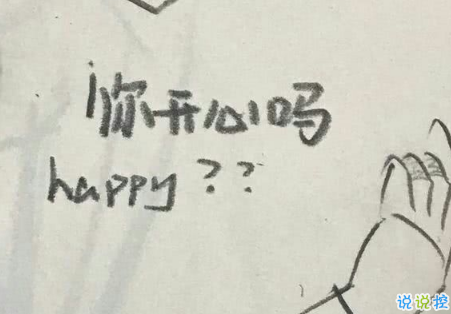 你开心吗
happy??
说说控